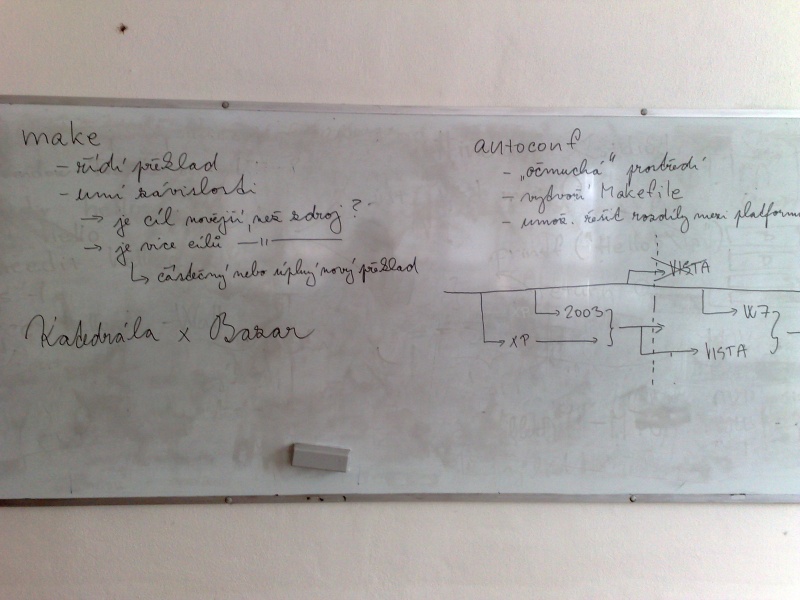 make
- řídí překlad
- umí závislosti
→ je cíl novější, než zdroj?
→ je více cílů —〃—
↳ částečný nebo úplný nový překlad
Katedrála x Bazar
autoconf
- „očmuchá“ prostředí
- vytvoří Makefile
- umož. řešit rozdíly mezi platforma
VISTA
2003
W7
XP
VISTA